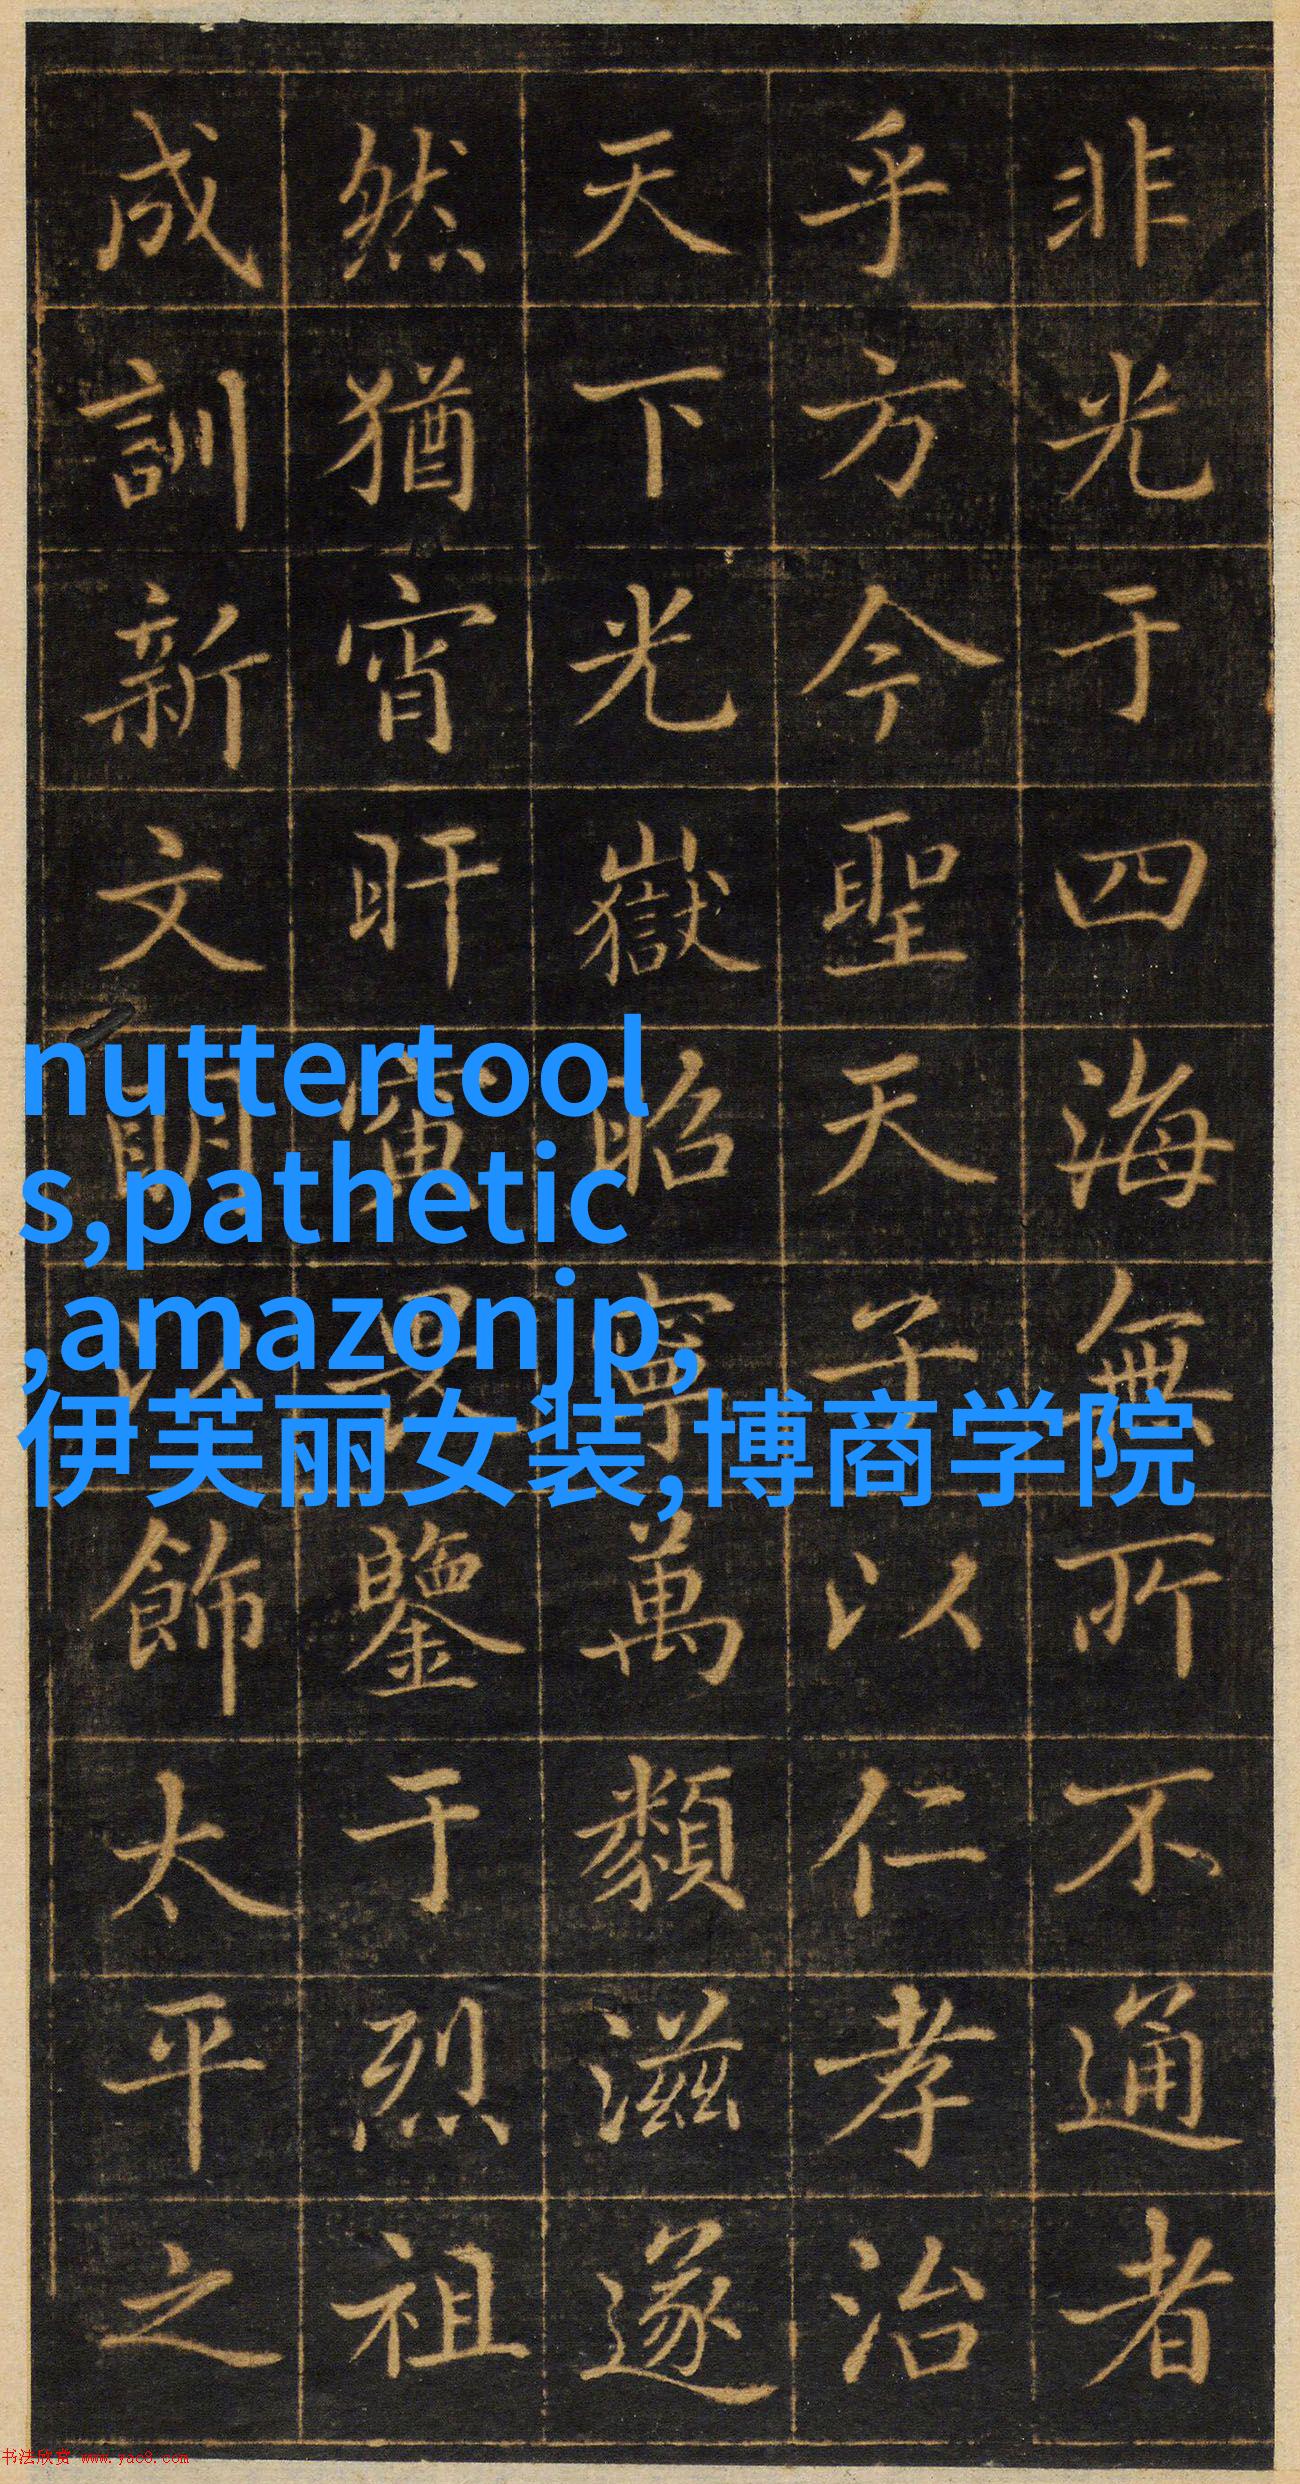 非光于四海無所不通者
乎方今聖天子以仁孝治
天下光嶽昭寧萬類滋遂
然猶宵旰寅畏鑒于烈祖
成訓新文明以飾太平之
nuttertool
s,pathetic
,amazonjp,
伊芙丽女装,博商学院
书法欣赏 www.yac8.com